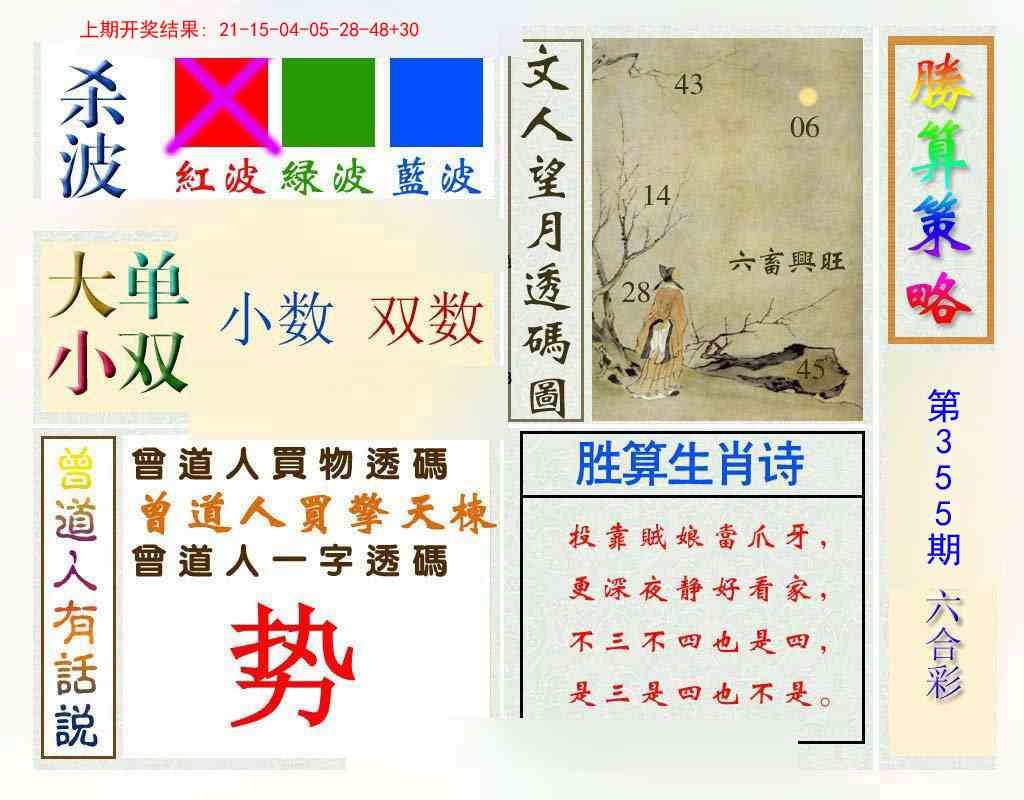 上期开奖结果: 21-15-04-05-28-48+30
杀波
紅波 緑波 藍波
大单
小双
小数 双数
文人望月透碼圖
43
06
14
六畜興旺
28
45
勝算策略
第355期
六合彩
曾道人有話説
曾道人買物透碼
曾道人買擎天棟
曾道人一字透碼
势
胜算生肖诗
投靠贼娘當爪牙，
更深夜静好看家，
不三不四也是四，
是三是四也不是。